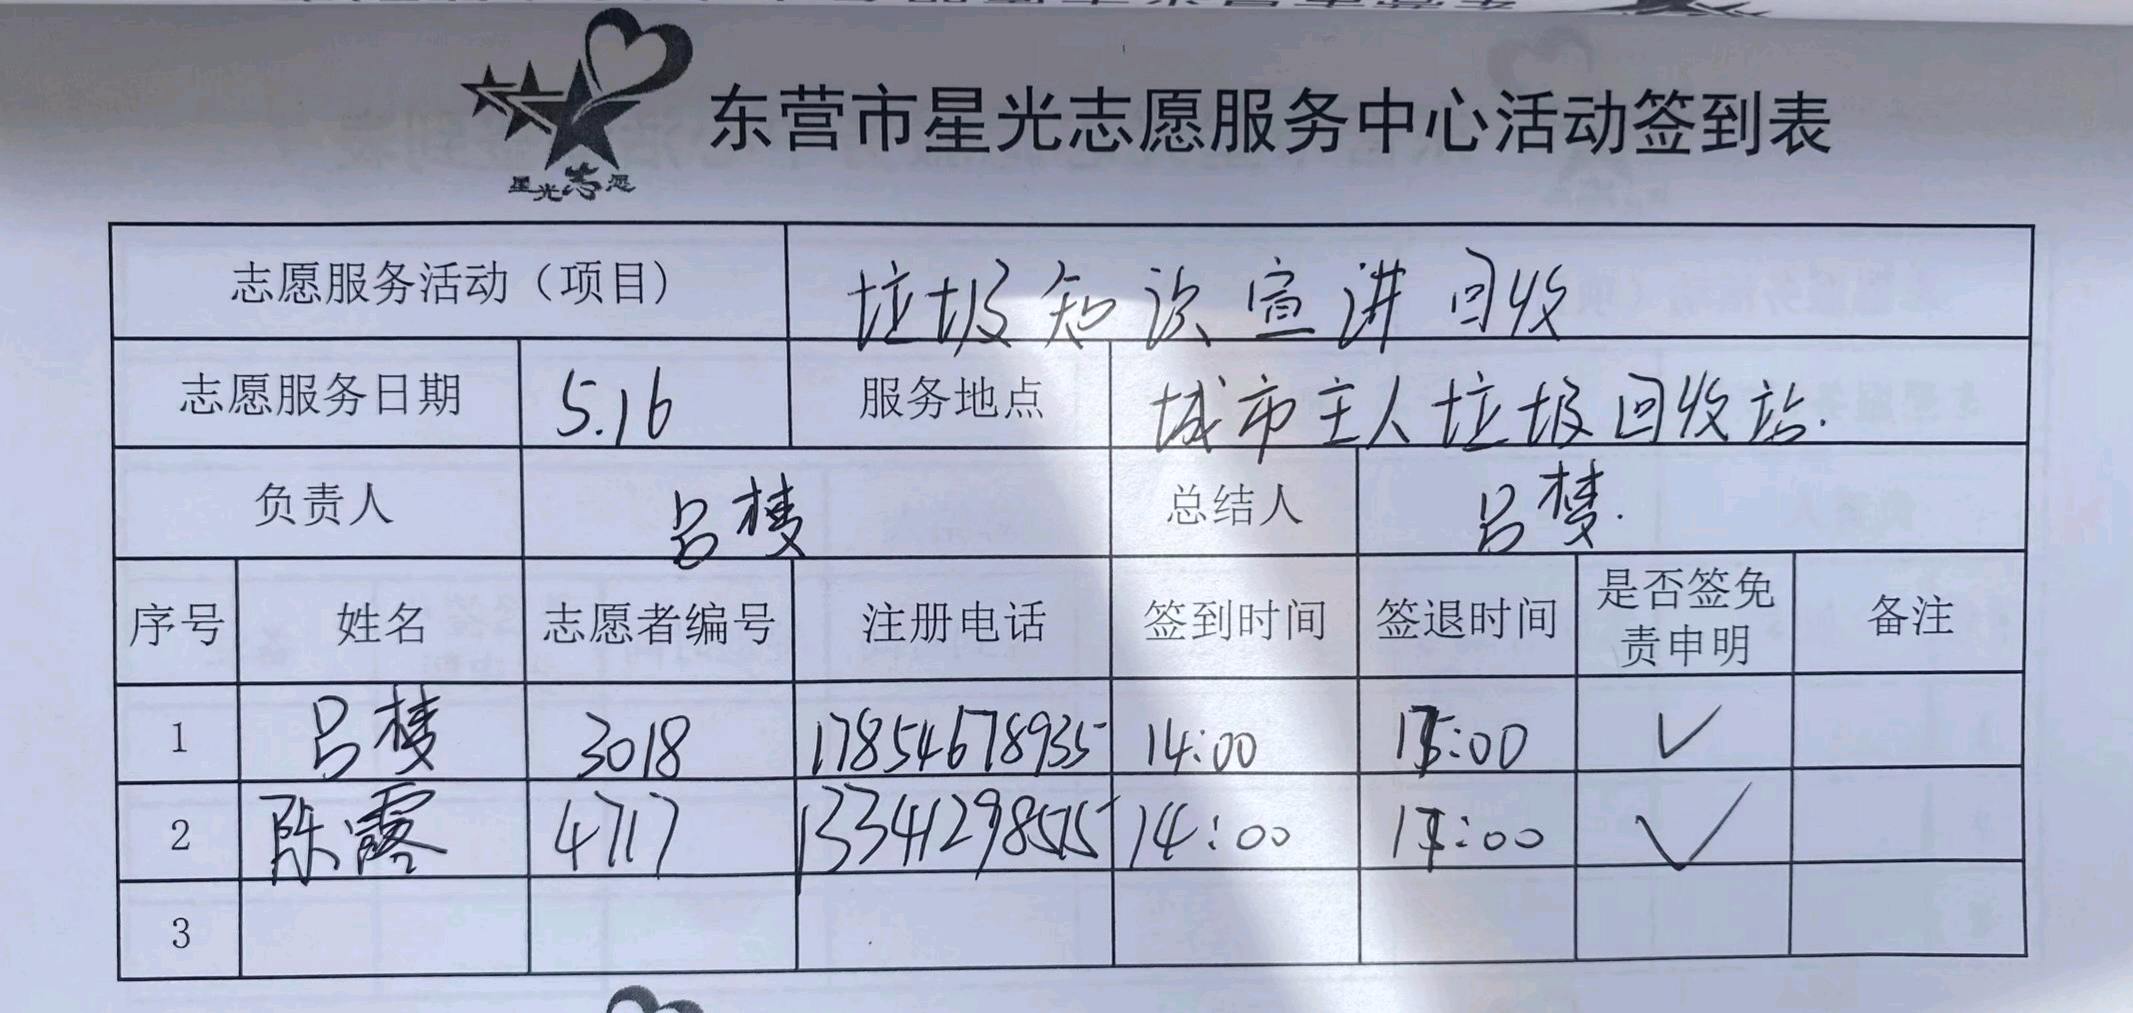 星光志愿
东营市星光志愿服务中心活动签到表
志愿服务活动（项目） 垃圾知识宣讲回收
志愿服务日期 5.16 服务地点 城市主人垃圾回收站.
负责人 吕楼 总结人 吕楼.
序号 姓名 志愿者编号 注册电话 签到时间 签退时间 是否签免责申明 备注
1 吕楼 3018 17854678935 14:00 :00 ✓
2 陈霞 4717 13341298515 14:00 :00 ✓
3